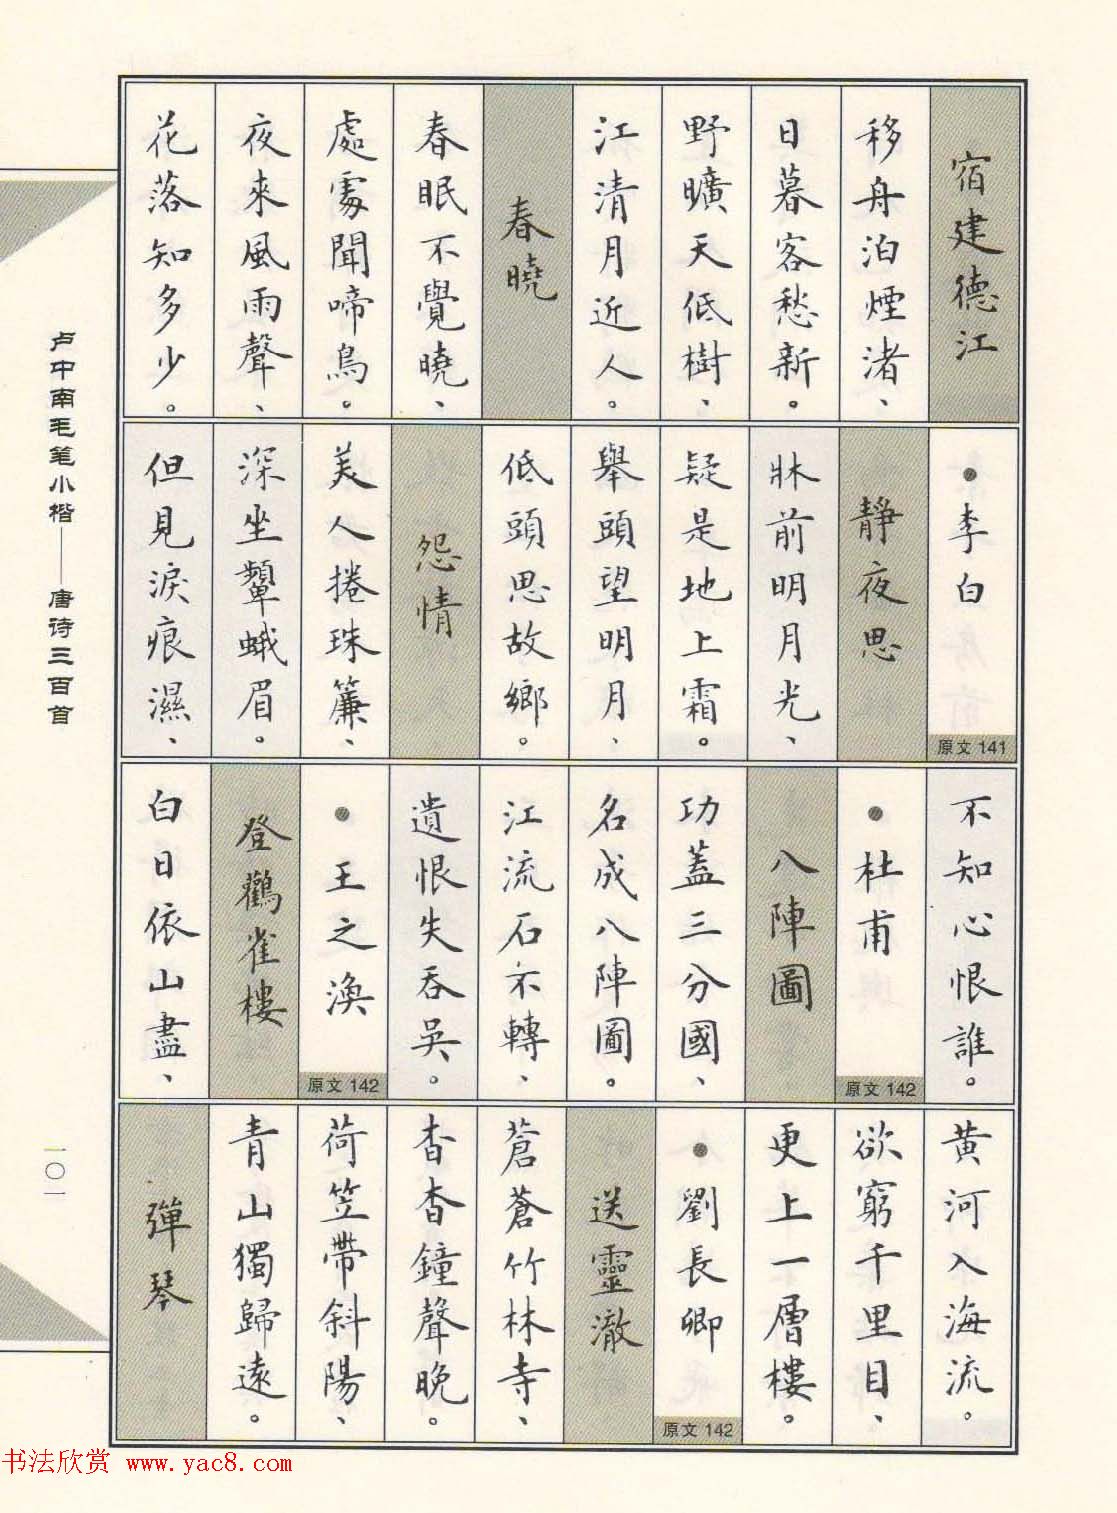 宿建德江
移舟泊煙渚、
日暮客愁新。
野曠天低樹、
江清月近人。
春曉
春眠不覺曉、
處處聞啼鳥。
夜來風雨聲、
花落知多少。
●李白
原文 141
靜夜思
牀前明月光、
疑是地上霜。
舉頭望明月、
低頭思故鄉。
怨情
美人捲珠簾、
深坐顰蛾眉。
但見淚痕濕、
不知心恨誰。
●杜甫
原文 142
八陣圖
功蓋三分國、
名成八陣圖。
江流石不轉、
遺恨失吞吳。
●王之渙
原文 142
登鸛雀樓
白日依山盡、
黃河入海流。
欲窮千里目、
更上一層樓。
●劉長卿
原文 142
送靈澈
蒼蒼竹林寺、
杳杳鐘聲晚。
荷笠帶斜陽、
青山獨歸遠。
彈琴
卢中南毛笔小楷——唐诗三百首
一〇一
书法欣赏 www.yac8.com